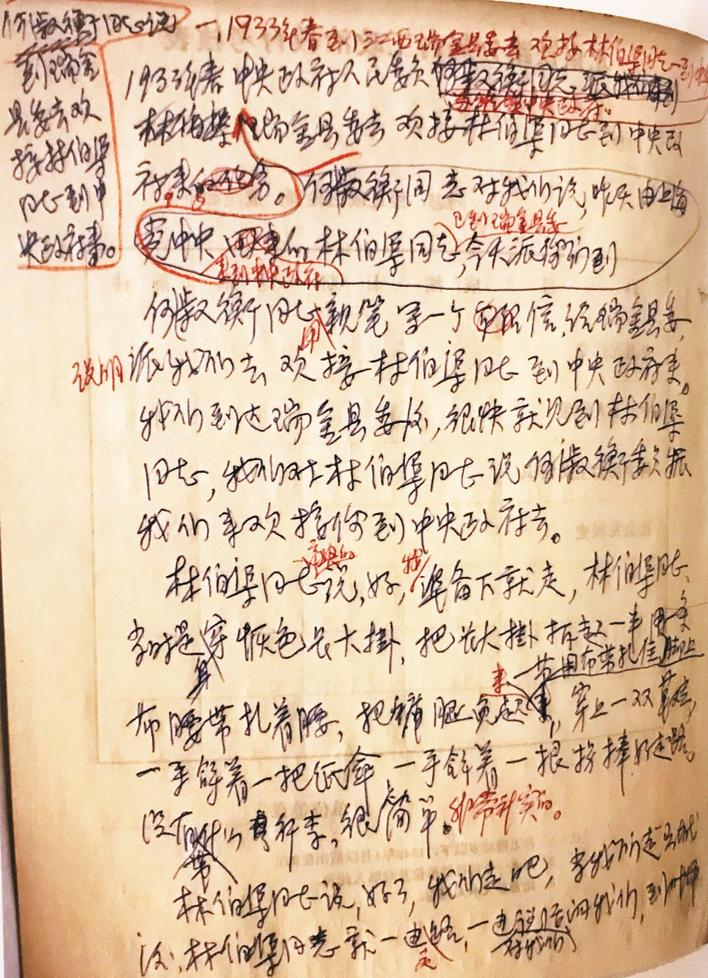 何叔衡同志说
到瑞金
县委去欢
接林伯渠
同志到中
央政府来。
一，1933年春到江西瑞金县委去欢接林伯渠同志一到中
1933年春中央政府人民委员何叔衡同志，派我们到
林伯渠 瑞金县委去欢接林伯渠同志到中央政
府来的任务。何叔衡同志对我们说，昨天由上海
党中央 来的林伯渠同志，已到瑞金县委 今天派你们到
何叔衡同志亲笔写一个 信，给瑞金县委，
说明派我们去欢接林伯渠同志到中央政府来。
我们到达瑞金县委后，很快就见到林伯渠
同志，我们对林伯渠同志说何叔衡委员派
我们来欢接你到中央政府去。
林伯渠同志 说，好，我准备下就走，林伯渠同志
当时是身穿灰色长大掛，把长大掛折起一半用一条
布腰带扎着腰，把裤腿 起来，用布带扎住脚上 穿上一双草鞋，
一手拿着一把纸伞，一手拿着一根 棒的走路。
没有带什么行李，很简单。非常朴实的。
林伯渠同志说，好了，我们走吧，当我们走出城
后，林伯渠同志就一边走路，一边 问我们，到